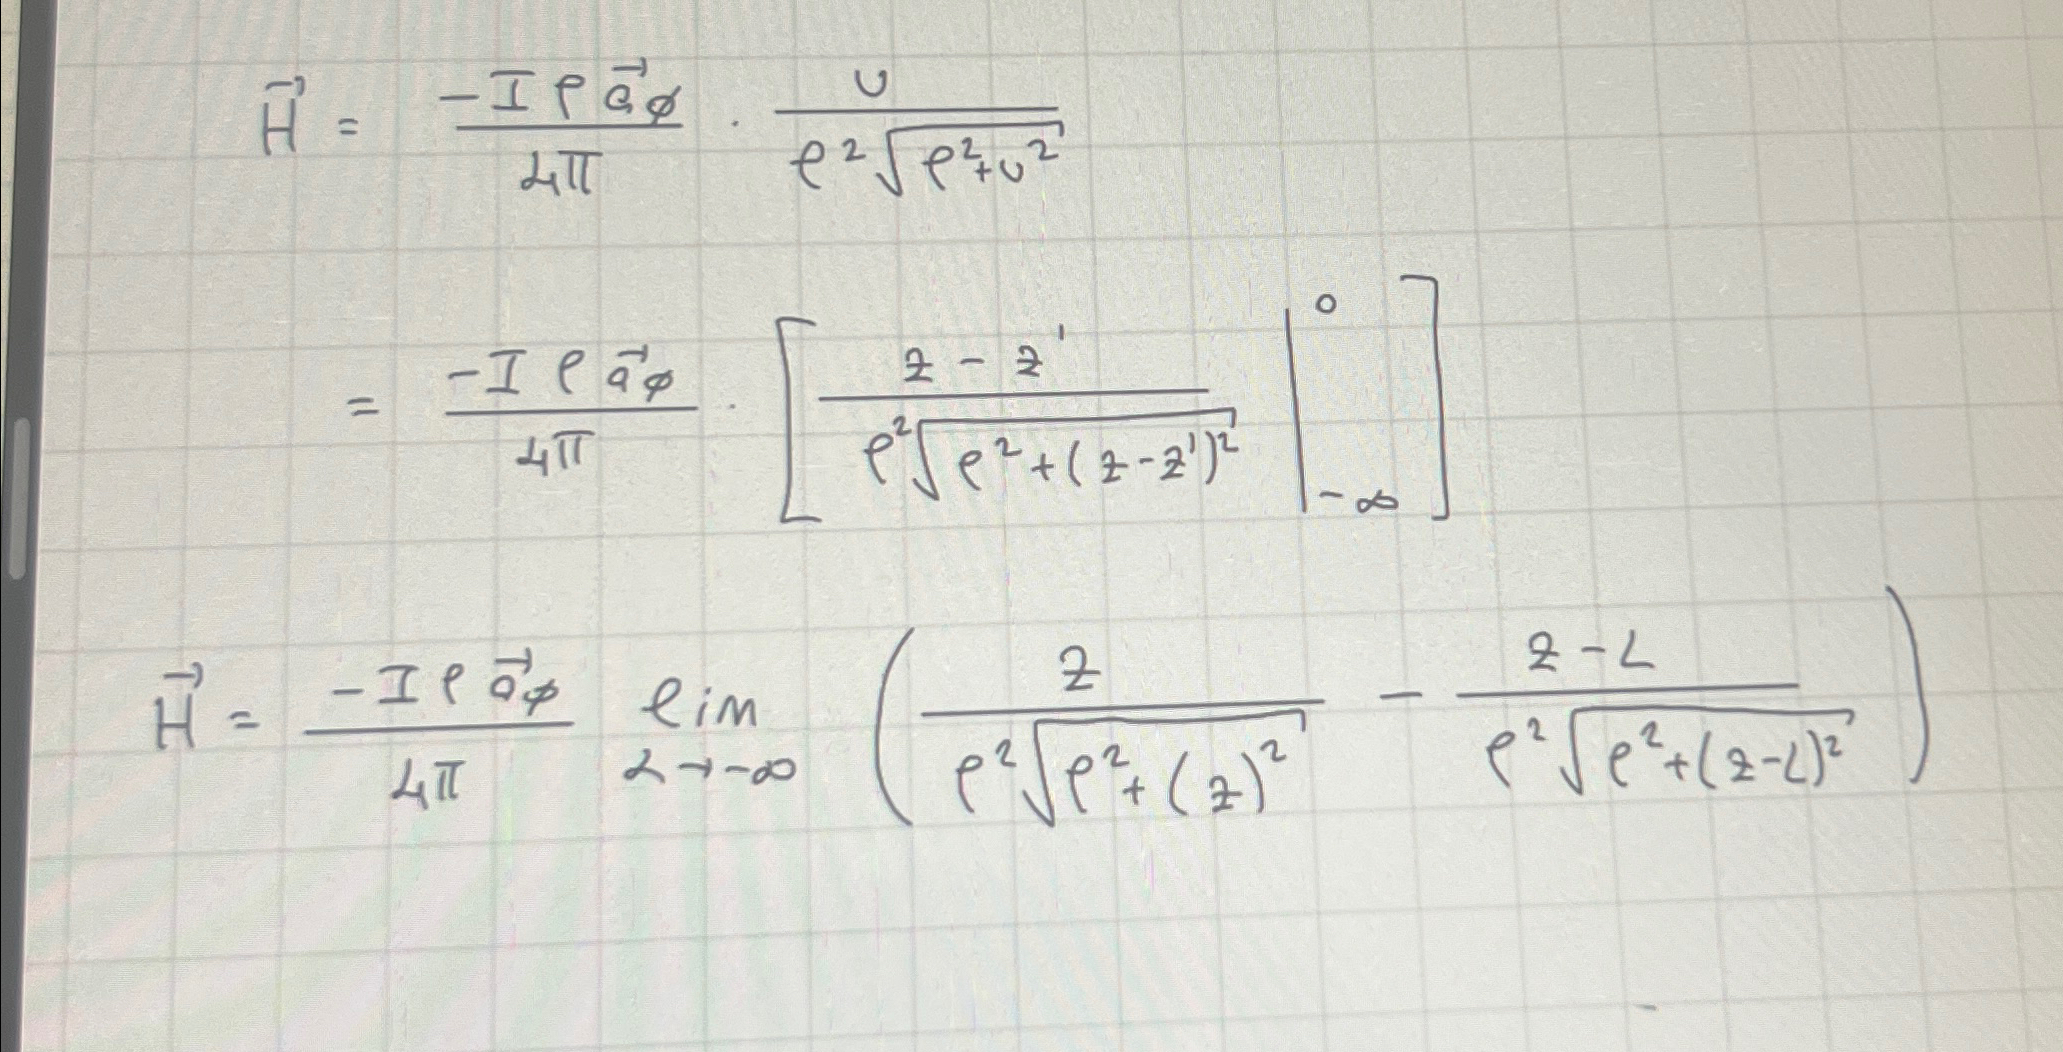 H⃗ = -Iρa⃗φ/4π · u/(ρ²√(ρ²+u²))
= -Iρa⃗φ/4π · [ (z - z')/(ρ²√(ρ²+(z-z')²)) |₋∞⁰ ]
H⃗ = -Iρa⃗φ/4π lim L→-∞ ( z/(ρ²√(ρ²+(z)²)) - (z-L)/(ρ²√(ρ²+(z-L)²)) )